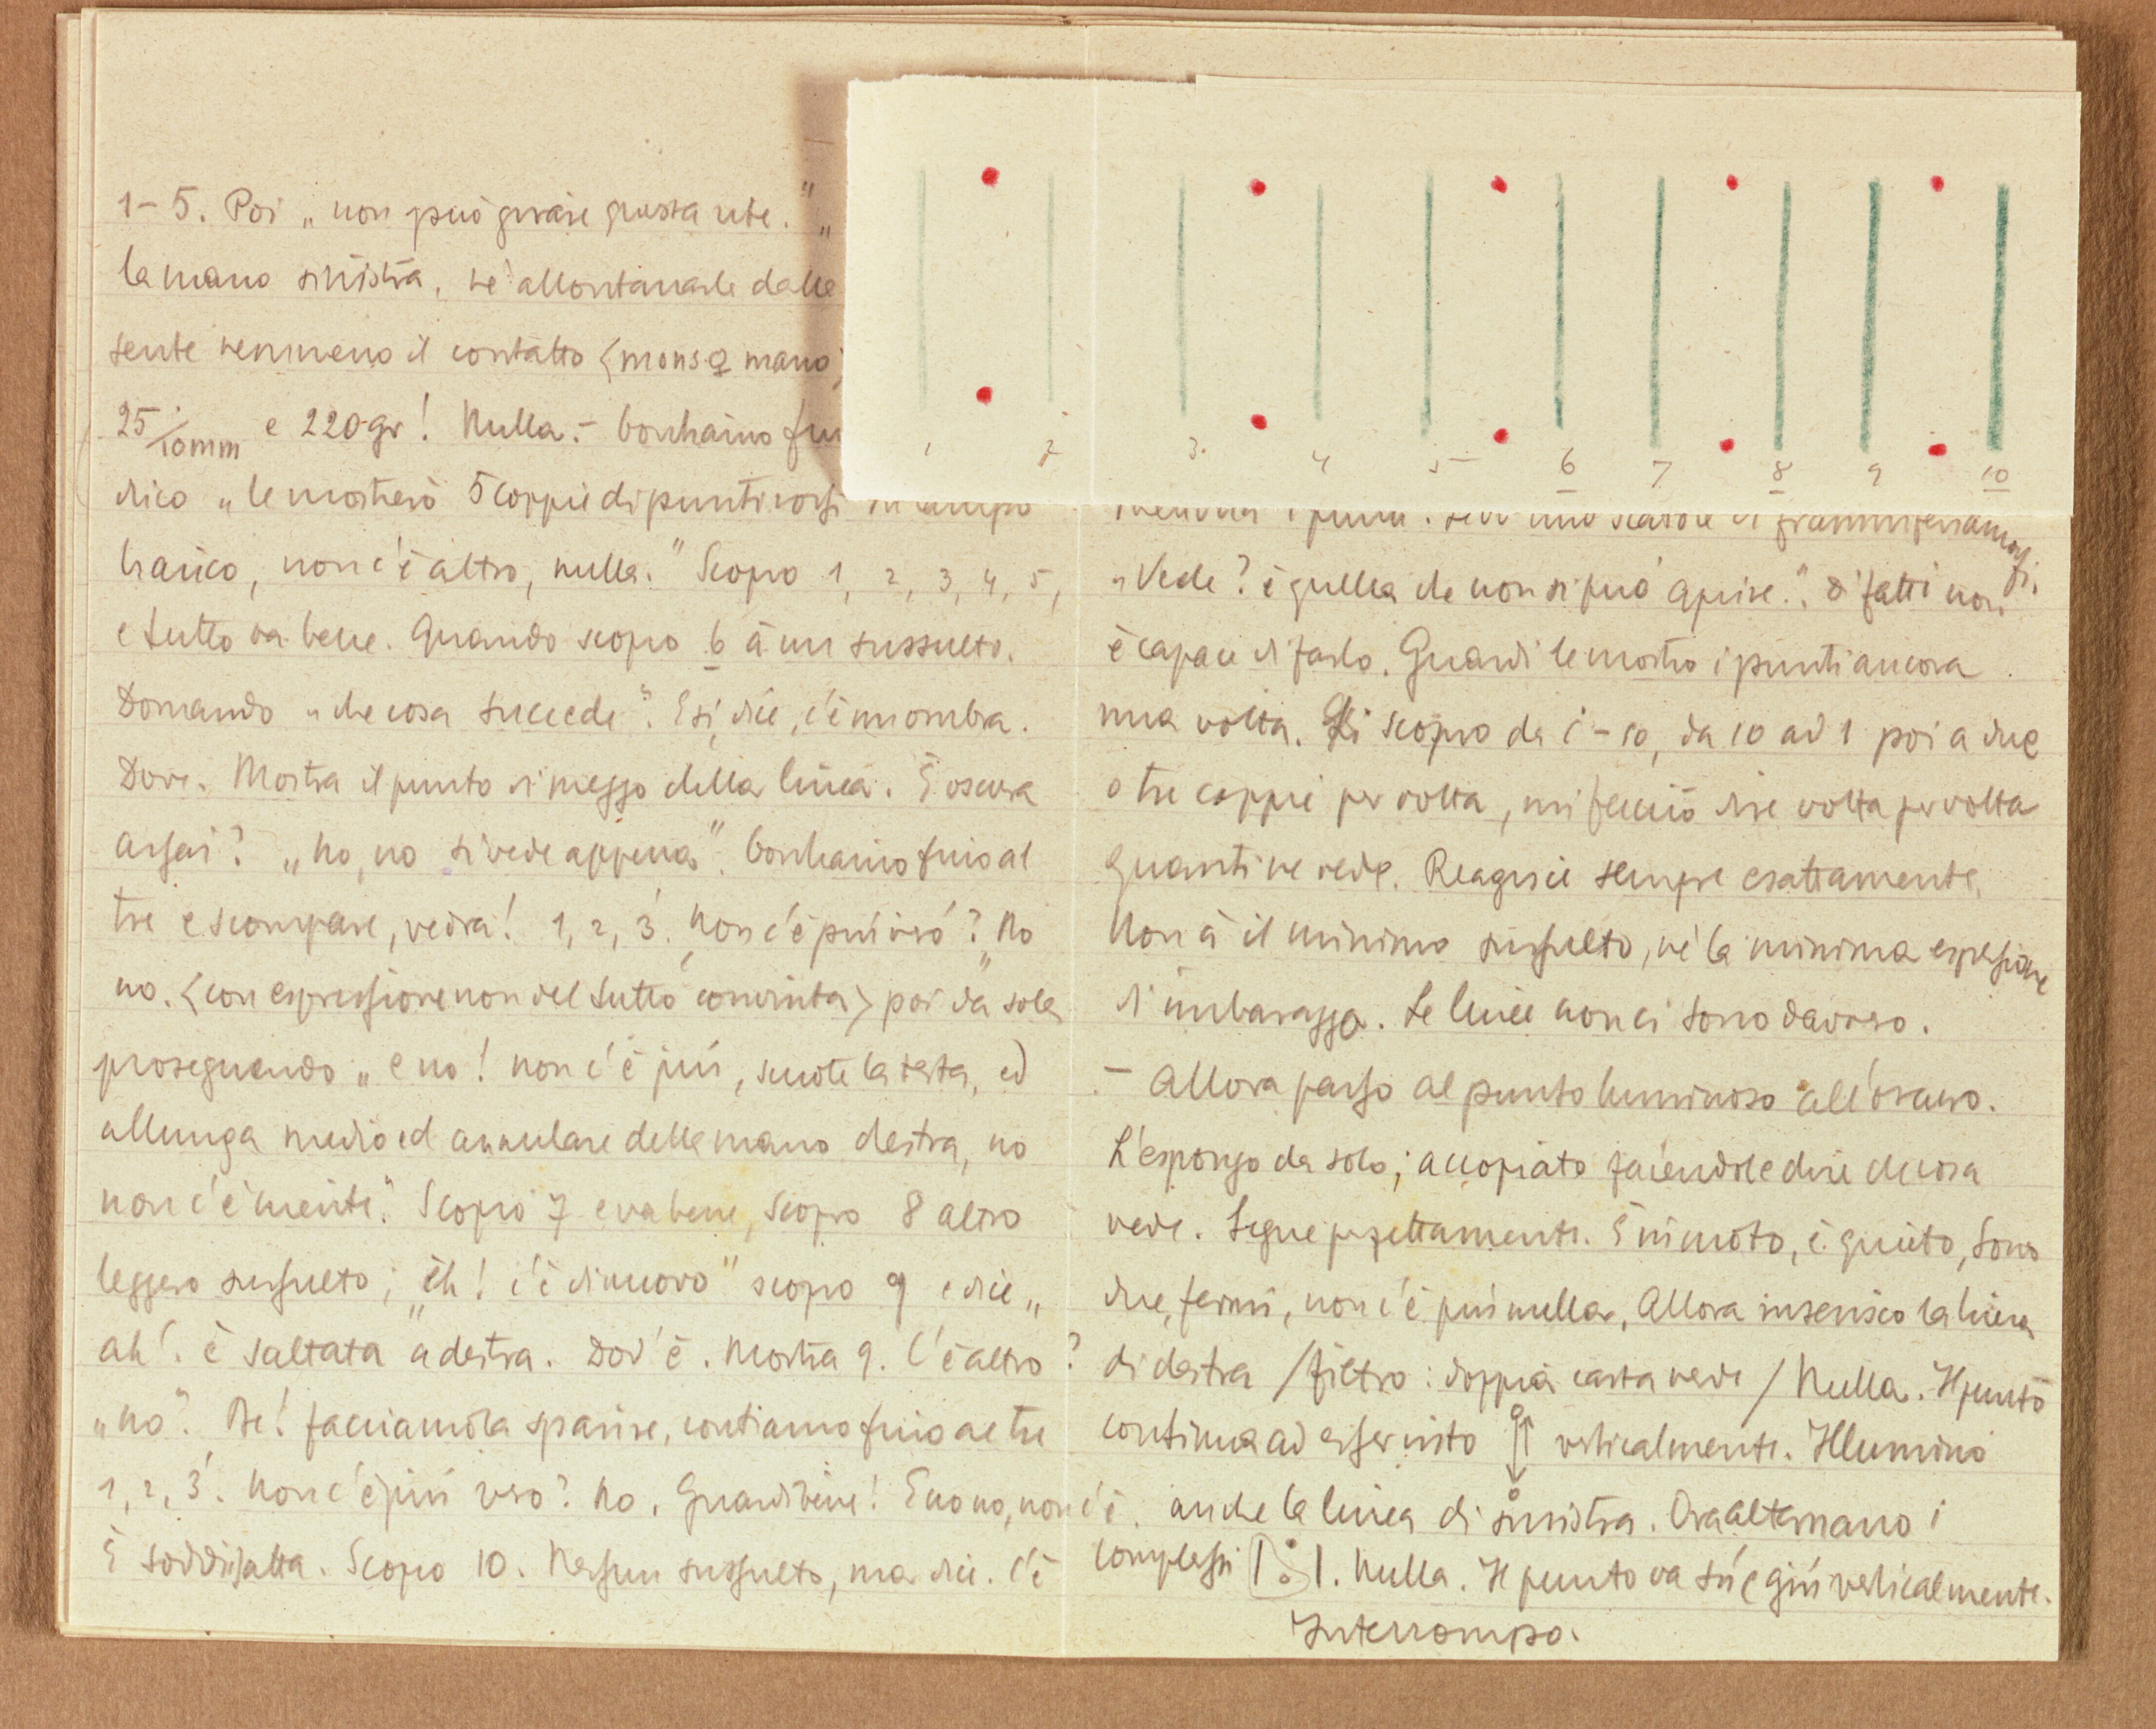 1 2 3. 4 5 6 7 8 9 10
1 – 5. Poi „ non può girare questa rete." „
la mano sinistra, né allontanarla dalla
sente nemmeno il contatto <mons. mano
25/10 mm e 220 gr! Nulla. – Contiamo
dico „ le mostrerò 5 coppie di punti rossi in campo
bianco, non c'è altro, nulla." Scopro 1, 2, 3, 4, 5,
e tutto va bene. Quando scopro 6 à un sussulto.
Domando „ che cosa succede". E sì, dice, c'è un ombra.
Dove. Mostra il punto di mezzo della linea. È oscura
assai? „ No, no si vede appena". Contiamo fino al
tre e scompare, vedrà! 1, 2, 3. Non c'è più vero? „ No
no. <con espressione non del tutto convinta> poi da sola
proseguendo „ e no! non c'è più, scuote la testa, ed
allunga medio ed annulare della mano destra, no
non c'è niente." Scopro 7 e va bene, scopro 8 altro
leggero sussulto; „ eh! c'è di nuovo" scopro 9 e dice „
ah! è saltata a destra. Dov'è. Mostra 9. C'è altro?
„ No". Be! facciamola sparire, contiamo fino al tre
1, 2, 3. Non c'è più vero? No. Guardi bene! E no no, non c'è.
È soddisfatta. Scopro 10. Nessun sussulto, ma dice. C'è
„ Vede? è quella che non si può aprire". Difatti non
è capace di farlo. Guardi le mostro i punti ancora
una volta. Li scopro da 1 – 10, da 10 ad 1 poi a due
o tre coppie per volta, mi faccio dire volta per volta
quanti ne vede. Reagisce sempre esattamente.
Non à il minimo sussulto, né la minima espressione
d'imbarazzo. Le linee non ci sono davvero.
– Allora passo al punto luminoso all'oscuro.
L'espongo da solo; accoppiato facendole dire che cosa
vede. Segue perfettamente. È in moto, è quieto, sono
due, fermi, non c'è più nulla. Allora inserisco la linea
di destra / filtro: doppia carta verde / Nulla. Il punto
continua ad esser visto verticalmente. Illumino
anche la linea di sinistra. Ora alternano i
complessi. Nulla. Il punto va sù e giù verticalmente.
Interrompo.